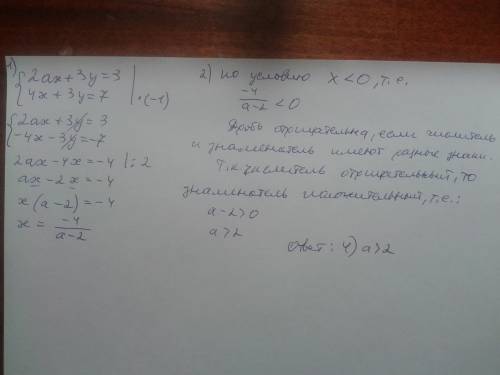 1)
{2ax+3y=3
{4x+3y=7 | ·(-1)
{2ax+3y=3
{-4x-3y=-7
2ax-4x=-4 |:2
ax-2x=-4
x(a-2)=-4
x = -4/(a-2)
2) по условию x<0, т.е.
-4/(a-2) < 0
Дробь отрицательна, если числитель
и знаменатель имеют разные знаки.
Т.к. числитель отрицательный, то
знаменатель положительный, т.е.:
a-2>0
a>2
Ответ: 4) a>2